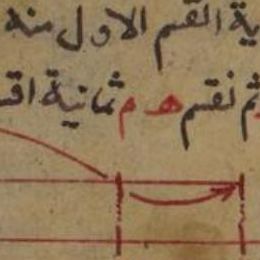 ية القسم الاول منه
ثم نقسم ه م ثمانية اقس